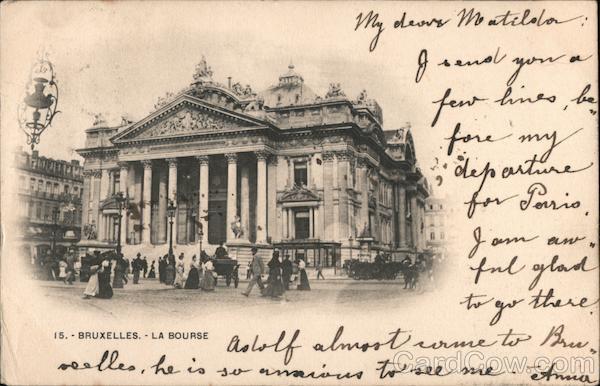 My dear Matilda:
I send you a
few lines, be-
fore my
departure
for Paris.
I am aw-
ful glad
to go there.
15. - BRUXELLES. - LA BOURSE
Adolf almost came to Bru-
xelles, he is so anxious to see me. Anna
CardCow.com